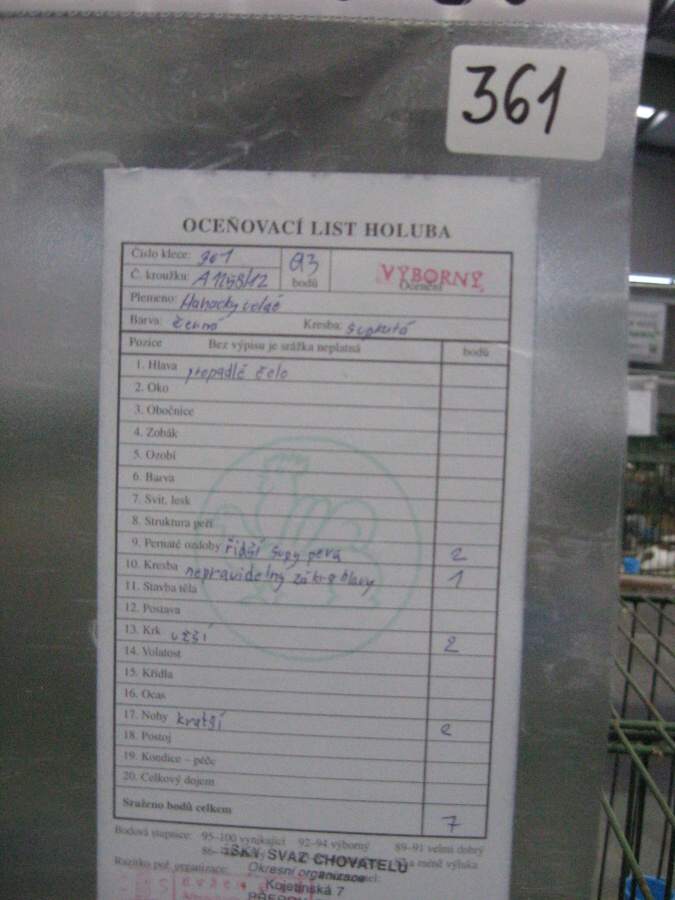 361
OCEŇOVACÍ LIST HOLUBA
Číslo klece: 361 93 VÝBORNÝ
Č. kroužku: bodů Ocenění
Plemeno: Hanácký voláč
Barva: černá Kresba: sypaná
Pozice Bez výpisu je srážka neplatná bodů
1. Hlava propadlé čelo
2. Oko
3. Obočnice
4. Zobák
5. Ozobí
6. Barva
7. Svit, lesk
8. Struktura peří
9. Pernaté ozdoby řidší supy pera 2
10. Kresba nepravidelný hlavy 1
11. Stavba těla
12. Postava
13. Krk užší 2
14. Volatost
15. Křídla
16. Ocas
17. Nohy kratší 2
18. Postoj
19. Kondice – péče
20. Celkový dojem
Sraženo bodů celkem 7
Bodová stupnice: 95–100 vynikající 92–94 výborný 89–91 velmi dobrý
86– a méně výluka
Razítko poř. organizace:
SVAZ CHOVATELŮ
Okresní organizace
Kojetínská 7